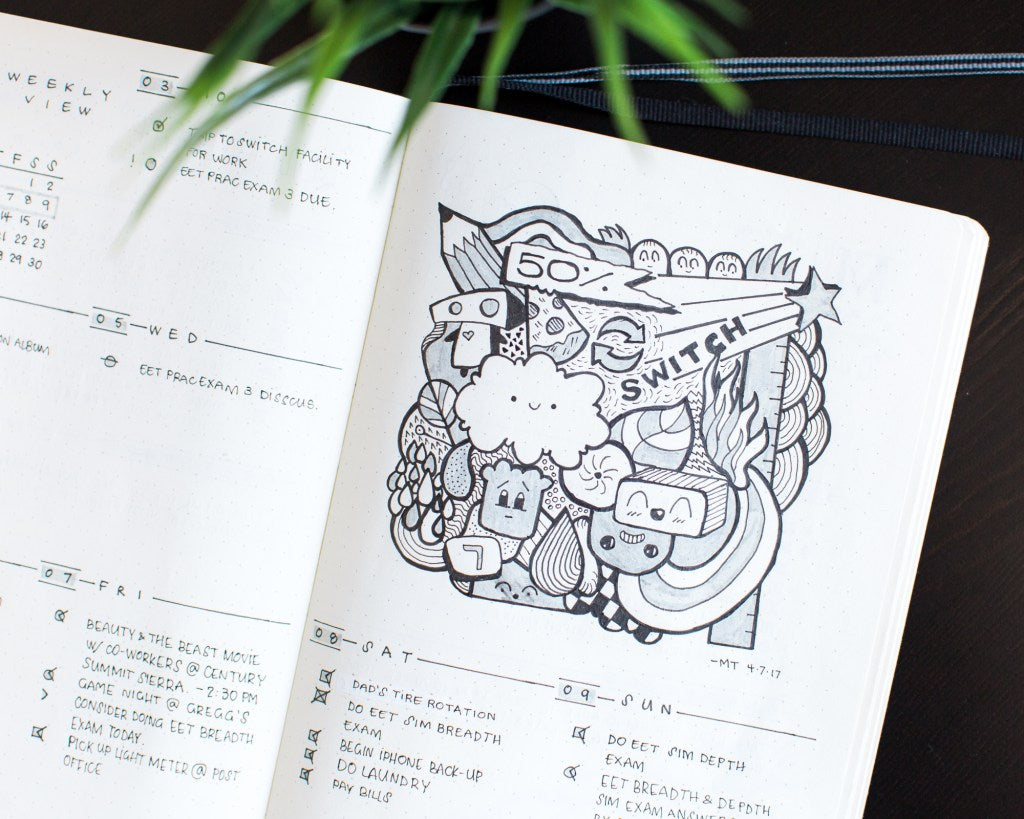 WEEKLY
VIEW
F S S
1 2
7 8 9
14 15 16
21 22 23
28 29 30
03
TO SWITCH FACILITY
FOR WORK
EET PRAC EXAM 3 DUE.
05 WED
ALBUM
EET PRAC EXAM 3 DISCUS.
07 FRI
BEAUTY & THE BEAST MOVIE
W/ CO-WORKERS @ CENTURY
SUMMIT SIERRA. ~2:30 PM
GAME NIGHT @ GREGG'S
CONSIDER DOING EET BREADTH
EXAM TODAY.
PICK UP LIGHT METER @ POST
OFFICE
50%
SWITCH
7
-MT 4.7.17
08 SAT
DAD'S TIRE ROTATION
DO EET SIM BREADTH
EXAM
BEGIN IPHONE BACK-UP
DO LAUNDRY
PAY BILLS
09 SUN
DO EET SIM DEPTH
EXAM
EET BREADTH & DEPDTH
SIM EXAM ANSWER